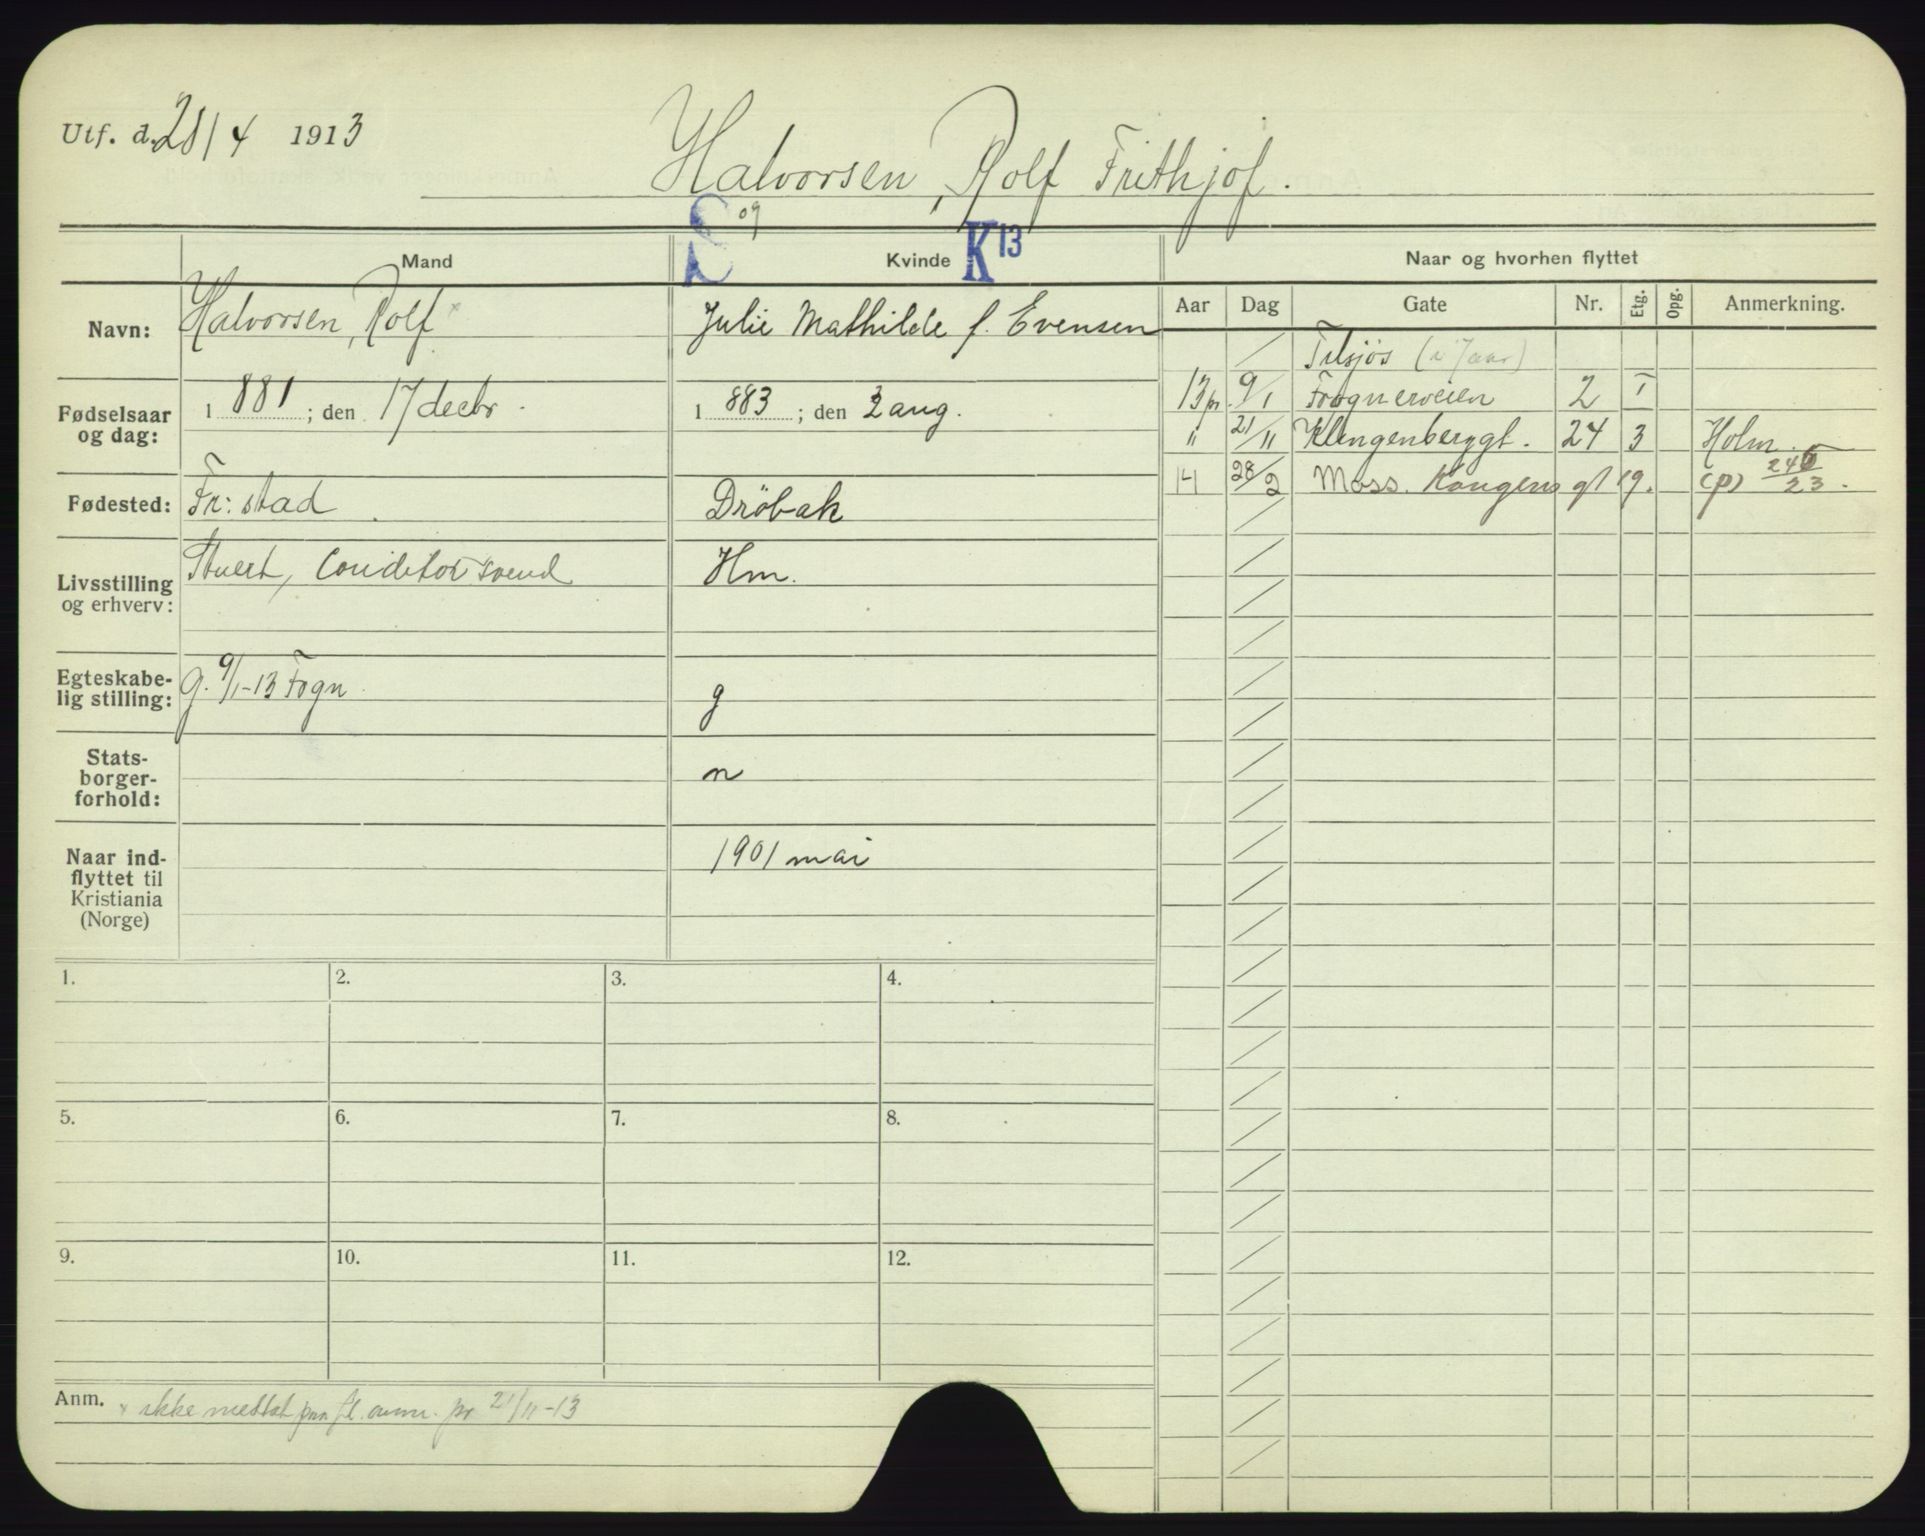 Utf. d. 28/4 1913
Halvorsen, Rolf Frithjof.
S 09 K 13
Mand Kvinde Naar og hvorhen flyttet
Aar Dag Gate Nr. Etg. Opg. Anmerkning.
Navn: Halvorsen, Rolf x Julie Mathilde f. Evensen
Tilsjøs (i 7 aar)
13 pr. 9/1 Frognerveien 2 I
Fødselsaar og dag: 1881; den 17 decbr. 1883; den 2 aug.
" 21/11 Klingenberggt. 24 3 Holm
14 28/2 Moss. Kongens gt 19. (p) 246/23.
Fødested: Fr:stad Dröbak
Livsstilling og erhverv: Stuert, Conditorsvend Hm.
Egteskabe-
lig stilling: g. 9/1-13 Fogn g
Stats-
borger-
forhold: n
Naar ind-
flyttet til
Kristiania
(Norge) 1901 mai
1. 2. 3. 4.
5. 6. 7. 8.
9. 10. 11. 12.
Anm. x ikke medtat paa fl. anm. pr 21/11-13